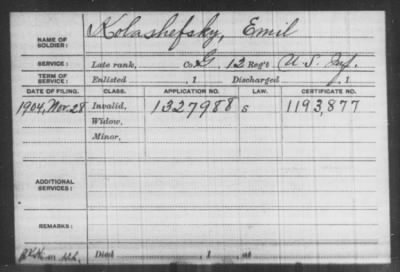 NAME OF SOLDIER: Kolashefsky, Emil
SERVICE: Late rank, Co. G, 12 Reg't U.S. Inf.
TERM OF SERVICE: Enlisted , 1 Discharged , 1
DATE OF FILING. CLASS. APPLICATION NO. LAW. CERTIFICATE NO.
1904, Nov. 28 Invalid, 1327988 S 1193,877
Widow,
Minor,
ADDITIONAL SERVICES:
REMARKS:
Died , 1 , at